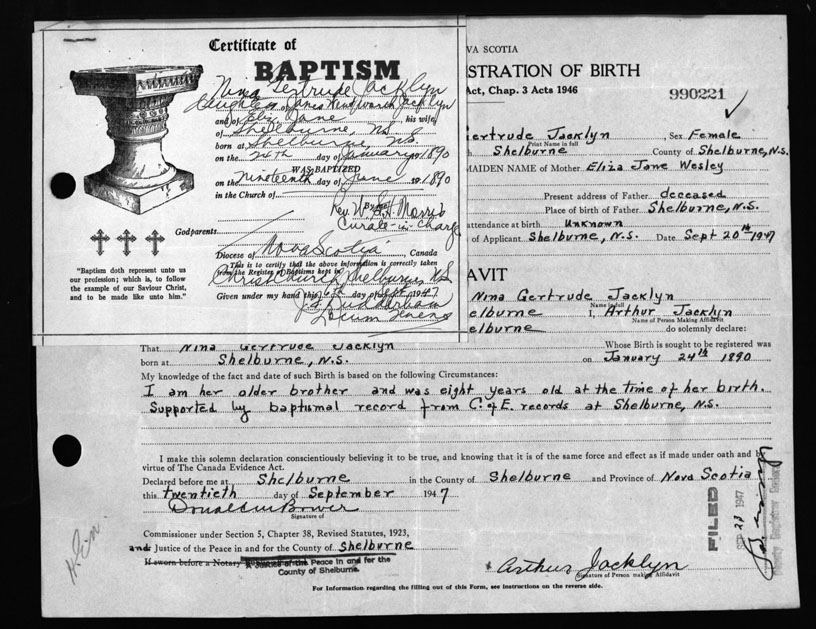 Certificate of
BAPTISM
Nina Gertrude Jacklyn
daughter of James Wentworth Jacklyn
and of Eliz. Jane his wife,
of Shelburne, N.S.
born at Shelburne, N.S.
on the 24th day of January 1890
WAS BAPTIZED
on the Nineteenth day of June 1890
in the Church of
By me Rev. W. S. H. Morris
Curate-in-charge
Godparents
Diocese of Nova Scotia, Canada
This is to certify that the above information is correctly taken
from the Register of Baptisms kept in
Christ Church, Shelburne, N.S.
Given under my hand this day of Sept 1947
Locum Tenens
"Baptism doth represent unto us
our profession; which is, to follow
the example of our Saviour Christ,
and to be made like unto him."
VA SCOTIA
STRATION OF BIRTH
Act, Chap. 3 Acts 1946
990221
Gertrude Jacklyn Sex Female
Print Name in full
h Shelburne County of Shelburne, N.S.
MAIDEN NAME of Mother Eliza Jane Wesley
Present address of Father deceased
Place of birth of Father Shelburne, N.S.
attendance at birth Unknown
of Applicant Shelburne, N.S. Date Sept 20th 1947
AVIT
Nina Gertrude Jacklyn
Name in full
elburne I, Arthur Jacklyn
Name of Person Making Affidavit
elburne do solemnly declare:
That Nina Gertrude Jacklyn Whose Birth is sought to be registered was
born at Shelburne, N.S. on January 24th 1890
My knowledge of the fact and date of such Birth is based on the following Circumstances:
I am her older brother and was eight years old at the time of her birth.
Supported by baptismal record from C. of E. records at Shelburne, N.S.
I make this solemn declaration conscientiously believing it to be true, and knowing that it is of the same force and effect as if made under oath and b
virtue of The Canada Evidence Act.
Declared before me at Shelburne in the County of Shelburne and Province of Nova Scotia
this twentieth day of September 1947
Signature of
Commissioner under Section 5, Chapter 38, Revised Statutes, 1923,
and Justice of the Peace in and for the County of Shelburne
If sworn before a Notary
A Justice of the Peace in and for the
County of Shelburne.
Arthur Jacklyn
Signature of Person making Affidavit
For Information regarding the filling out of this Form, see Instructions on the reverse side.
FILED
SEP 23 1947